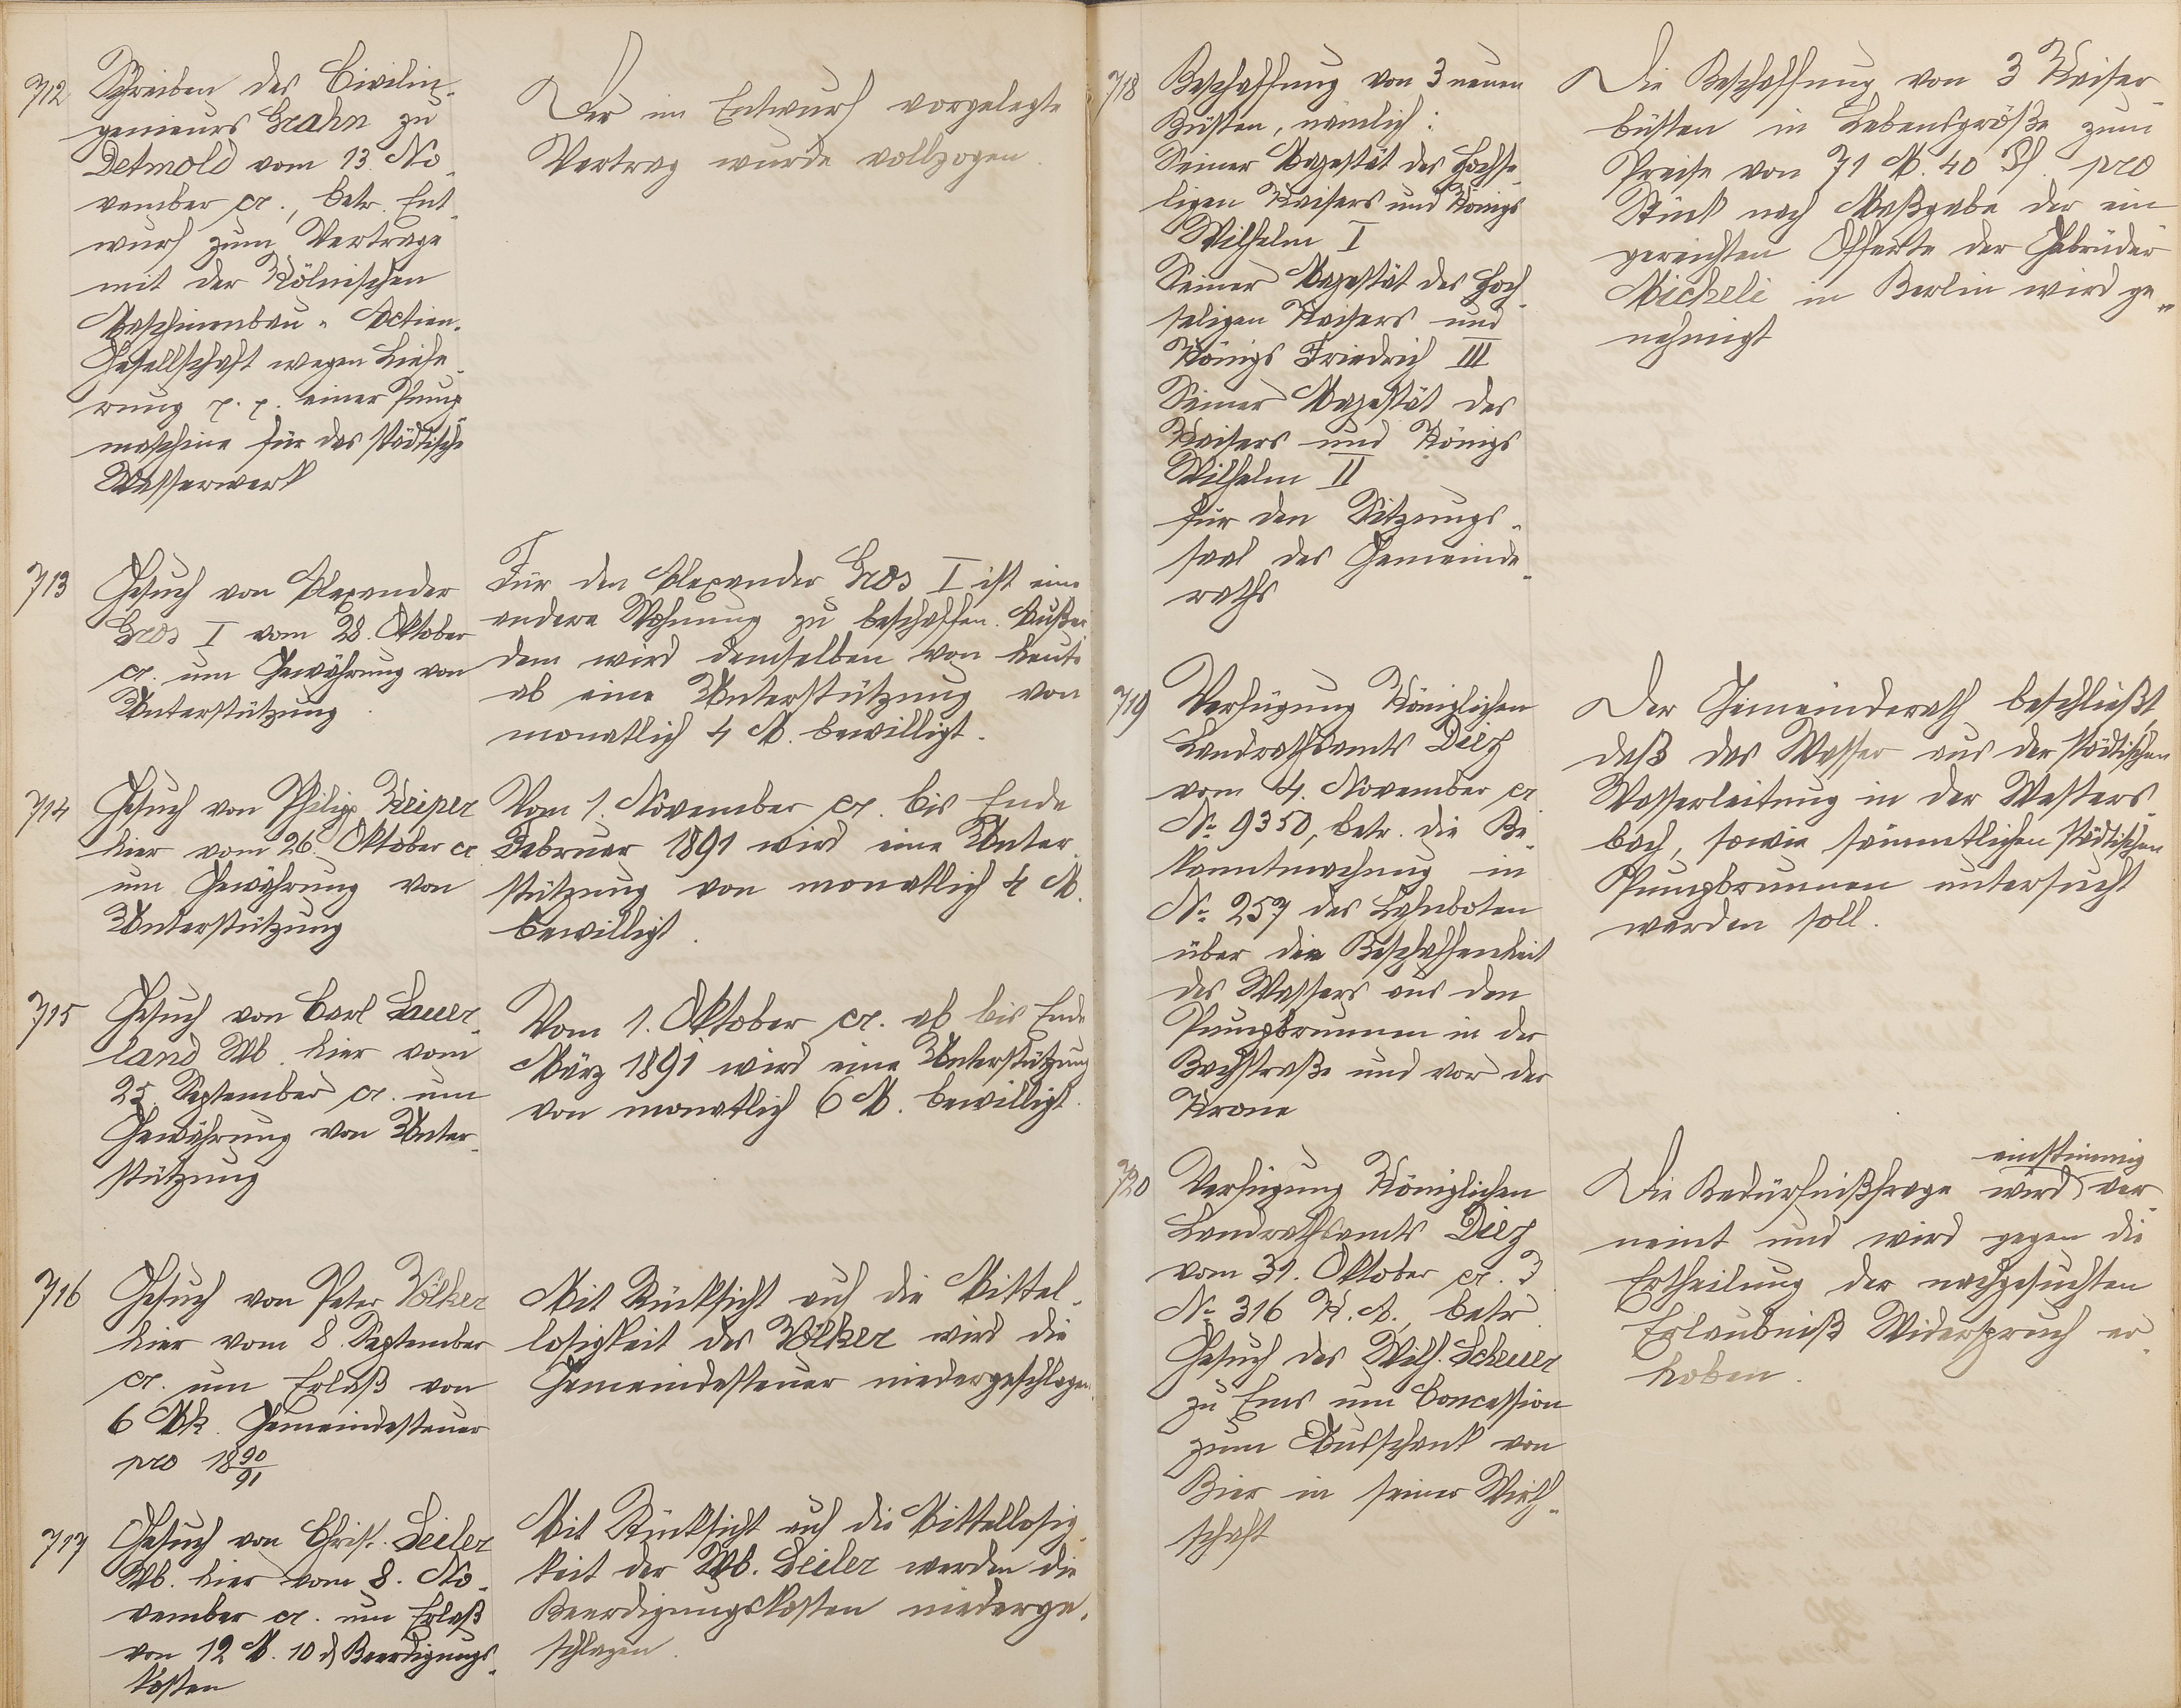 712
Schreiben des Civilin-
genieurs Grahn zu
Detmold vom 13. No-
vember cr., betr. Ent-
wurf zum Vertrage
mit der Kölnischen
Maschinenbau-Actien-
Gesellschaft wegen Liefe-
rung p. p. einer Pump-
maschine für das städtische
Wasserwerk
Der im Entwurf vorgelegte
Vertrag wurde vollzogen.
713
Gesuch von Alexander
Gros I vom 28. Oktober
cr. um Gewährung von
Unterstützung.
Für den Alexander Gros I ist eine
andere Wohnung zu beschaffen. Außer
dem wird demselben von heute
ab eine Unterstützung von
monatlich 4 M. bewilligt.
714
Gesuch von Philipp Keiper
hier vom 26. Oktober cr
um Gewährung von
Unterstützung
Vom 1. November cr. bis Ende
Februar 1891 wird eine Unter-
stützung von monatlich 4 M.
bewilligt.
715
Gesuch von Carl Sauer-
land Wb. hier vom
25. September cr. um
Gewährung von Unter-
stützung
Vom 1. Oktober cr. ab bis Ende
März 1891 wird eine Unterstützung
von monatlich 6 M. bewilligt.
716
Gesuch von Peter Völker
hier vom 8. September
cr. um Erlaß von
6 Mk. Gemeindesteuer
pro 1890/91
Mit Rücksicht auf die Mittel-
losigkeit des Völker wird die
Gemeindesteuer niedergeschlagen.
717
Gesuch von Christ. Seiler
Wb. hier vom 8. No-
vember cr. um Erlaß
von 12 M. 10 d Beerdigungs-
kosten
Mit Rücksicht auf die Mittellosig-
keit der Wb. Seiler werden die
Beerdigungskosten niederge-
schlagen.
718
Beschaffung von 3 neuen
Büsten, nämlich:
Seiner Majestät des Hochse-
ligen Kaisers und Königs
Wilhelm I
Seiner Majestät des Hoch-
seligen Kaisers und
Königs Friedrich III
Seiner Majestät des
Kaisers und Königs
Wilhelm II
für den Sitzungs-
saal des Gemeinde-
raths
Die Beschaffung von 3 Kaiser-
büsten in Lebensgröße zum
Preise von 71 M. 40 Pf. pro
Stück nach Maßgabe der ein-
gereichten Offerte der Gebrüder
Micheli in Berlin wird ge-
nehmigt
719
Verfügung Königlichen
Landrathsamts Diez
vom 4. November cr
No. 9350, betr. die Be-
kanntmachung in
No. 257 des Lahnboten
über die Beschaffenheit
des Wassers aus den
Pumpbrunnen in der
Bachstraße und vor der
Krone
Der Gemeinderath beschließt,
daß das Wasser aus der städtischen
Wasserleitung in der Wasters-
bach, sowie sämmtlichen städtischen
Pumpbrunnen untersucht
werden soll.
720
Verfügung Königlichen
Landrathsamts Diez
vom 31. Oktober cr. J
No. 316 K. A., betr.
Gesuch des Wilh. Scheuer
zu Ems um Concession
zum Ausschank von
Bier in seiner Wirth-
schaft
einstimmig
Die Bedürfnißfrage wird ver-
neint und wird gegen die
Ertheilung der nachgesuchten
Erlaubniß Widerspruch er-
hoben.